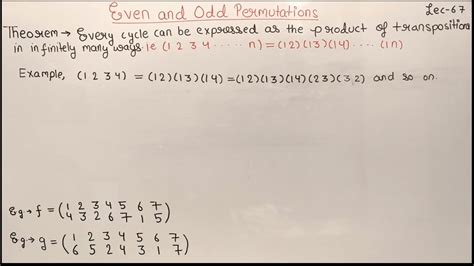 Even and Odd Permutations
Lec-67
Theorem → Every cycle can be expressed as the product of transpositions
in infinitely many ways. ie (1 2 3 4 ..... n) = (12)(13)(14) ..... (1n)
Example, (1 2 3 4) = (12)(13)(14) = (12)(13)(14)(23)(3,2) and so on.
Eg → f = (1 2 3 4 5 6 7
4 3 2 6 7 1 5)
Eg → g = (1 2 3 4 5 6 7
6 5 2 4 3 1 7)